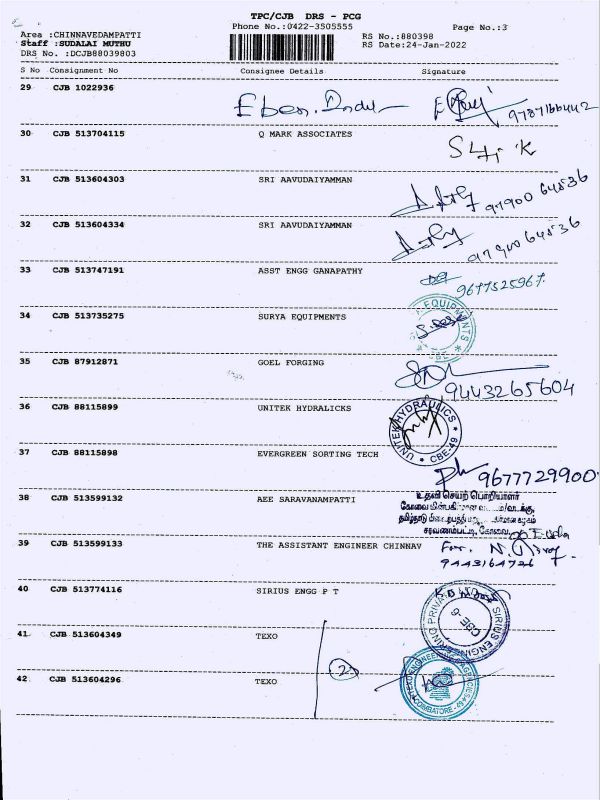 TPC/CJB DRS - PCG
Phone No.:0422-3505555
Page No.:3
Area :CHINNAVEDAMPATTI
Staff :SUDALAI MUTHU
DRS No. :DCJB88039803
RS No.:880398
RS Date:24-Jan-2022
S No Consignment No Consignee Details Signature
29 CJB 1022936
9787166442
30 CJB 513704115 Q MARK ASSOCIATES
31 CJB 513604303 SRI AAVUDAIYAMMAN
97900 64536
32 CJB 513604334 SRI AAVUDAIYAMMAN
97900 64536
33 CJB 513747191 ASST ENGG GANAPATHY
9677525967.
34 CJB 513735275 SURYA EQUIPMENTS
EQUIPMENTS
35 CJB 87912871 GOEL FORGING
9443265604
36 CJB 88115899 UNITEK HYDRALICKS
UNITEK HYDRAULICS * CBE-49 *
37 CJB 88115898 EVERGREEN SORTING TECH
9677729900
38 CJB 513599132 AEE SARAVANAMPATTI
உதவி செயற் பொறியாளர்
சரவணம்பட்டி, கோவை
39 CJB 513599133 THE ASSISTANT ENGINEER CHINNAV
For. N.
9443164726
40 CJB 513774116 SIRIUS ENGG P T
SIRIUS
41 CJB 513604349 TEXO
2
42 CJB 513604296 TEXO
COIMBATORE